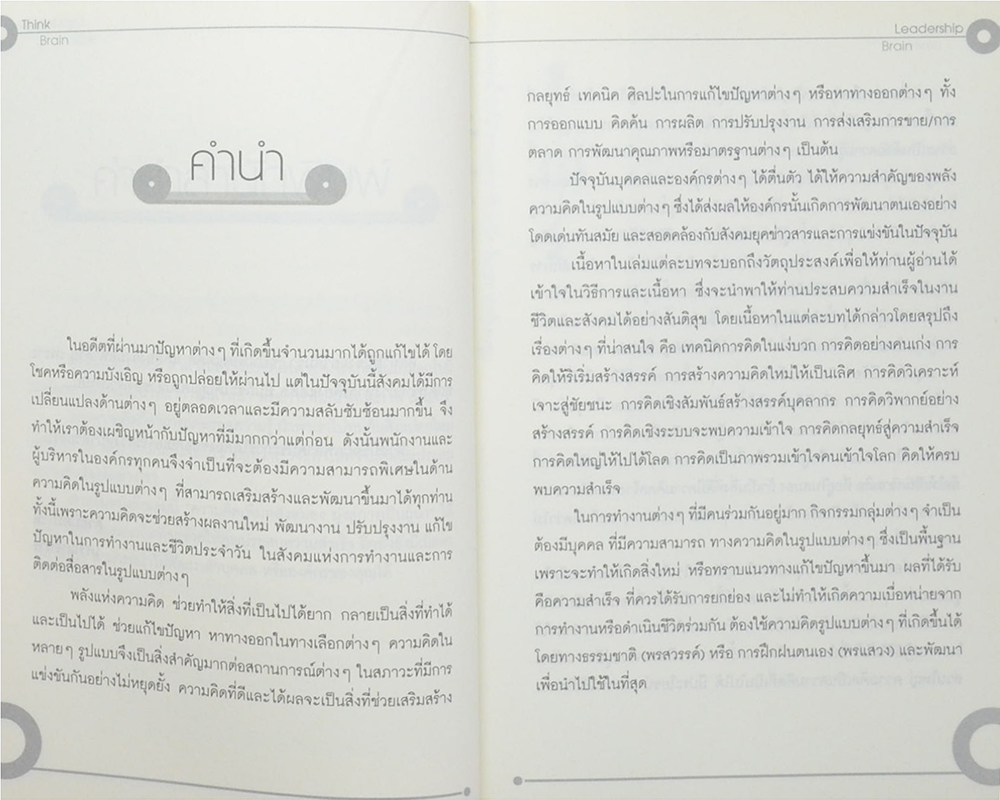 Think
Brain
คำนำ
ในอดีตที่ผ่านมาปัญหาต่างๆ ที่เกิดขึ้นจำนวนมากได้ถูกแก้ไขได้ โดย
โชคหรือความบังเอิญ หรือถูกปล่อยให้ผ่านไป แต่ในปัจจุบันนี้สังคมได้มีการ
เปลี่ยนแปลงด้านต่างๆ อยู่ตลอดเวลาและมีความสลับซับซ้อนมากขึ้น จึง
ทำให้เราต้องเผชิญหน้ากับปัญหาที่มีมากกว่าแต่ก่อน ดังนั้นพนักงานและ
ผู้บริหารในองค์กรทุกคนจึงจำเป็นที่จะต้องมีความสามารถพิเศษในด้าน
ความคิดในรูปแบบต่างๆ ที่สามารถเสริมสร้างและพัฒนาขึ้นมาได้ทุกท่าน
ทั้งนี้เพราะความคิดจะช่วยสร้างผลงานใหม่ พัฒนางาน ปรับปรุงงาน แก้ไข
ปัญหาในการทำงานและชีวิตประจำวัน ในสังคมแห่งการทำงานและการ
ติดต่อสื่อสารในรูปแบบต่างๆ
พลังแห่งความคิด ช่วยทำให้สิ่งที่เป็นไปได้ยาก กลายเป็นสิ่งที่ทำได้
และเป็นไปได้ ช่วยแก้ไขปัญหา หาทางออกในทางเลือกต่างๆ ความคิดใน
หลายๆ รูปแบบจึงเป็นสิ่งสำคัญมากต่อสถานการณ์ต่างๆ ในสภาวะที่มีการ
แข่งขันกันอย่างไม่หยุดยั้ง ความคิดที่ดีและได้ผลจะเป็นสิ่งที่ช่วยเสริมสร้าง
Leadership
Brain
กลยุทธ์ เทคนิค ศิลปะในการแก้ไขปัญหาต่างๆ หรือหาทางออกต่างๆ ทั้ง
การออกแบบ คิดค้น การผลิต การปรับปรุงงาน การส่งเสริมการขาย/การ
ตลาด การพัฒนาคุณภาพหรือมาตรฐานต่างๆ เป็นต้น
ปัจจุบันบุคคลและองค์กรต่างๆ ได้ตื่นตัว ได้ให้ความสำคัญของพลัง
ความคิดในรูปแบบต่างๆ ซึ่งได้ส่งผลให้องค์กรนั้นเกิดการพัฒนาตนเองอย่าง
โดดเด่นทันสมัย และสอดคล้องกับสังคมยุคข่าวสารและการแข่งขันในปัจจุบัน
เนื้อหาในเล่มแต่ละบทจะบอกถึงวัตถุประสงค์เพื่อให้ท่านผู้อ่านได้
เข้าใจในวิธีการและเนื้อหา ซึ่งจะนำพาให้ท่านประสบความสำเร็จในงาน
ชีวิตและสังคมได้อย่างสันติสุข โดยเนื้อหาในแต่ละบทได้กล่าวโดยสรุปถึง
เรื่องต่างๆ ที่น่าสนใจ คือ เทคนิคการคิดในแง่บวก การคิดอย่างคนเก่ง การ
คิดให้ริเริ่มสร้างสรรค์ การสร้างความคิดใหม่ให้เป็นเลิศ การคิดวิเคราะห์
เจาะสู่ชัยชนะ การคิดเชิงสัมพันธ์สร้างสรรค์บุคลากร การคิดวิพากย์อย่าง
สร้างสรรค์ การคิดเชิงระบบจะพบความเข้าใจ การคิดกลยุทธ์สู่ความสำเร็จ
การคิดใหญ่ให้ไปได้โลด การคิดเป็นภาพรวมเข้าใจคนเข้าใจโลก คิดให้ครบ
พบความสำเร็จ
ในการทำงานต่างๆ ที่มีคนร่วมกันอยู่มาก กิจกรรมกลุ่มต่างๆ จำเป็น
ต้องมีบุคคล ที่มีความสามารถ ทางความคิดในรูปแบบต่างๆ ซึ่งเป็นพื้นฐาน
เพราะจะทำให้เกิดสิ่งใหม่ หรือทราบแนวทางแก้ไขปัญหาขึ้นมา ผลที่ได้รับ
คือความสำเร็จ ที่ควรได้รับการยกย่อง และไม่ทำให้เกิดความเบื่อหน่ายจาก
การทำงานหรือดำเนินชีวิตร่วมกัน ต้องใช้ความคิดรูปแบบต่างๆ ที่เกิดขึ้นได้
โดยทางธรรมชาติ (พรสวรรค์) หรือ การฝึกฝนตนเอง (พรแสวง) และพัฒนา
เพื่อนำไปใช้ในที่สุด